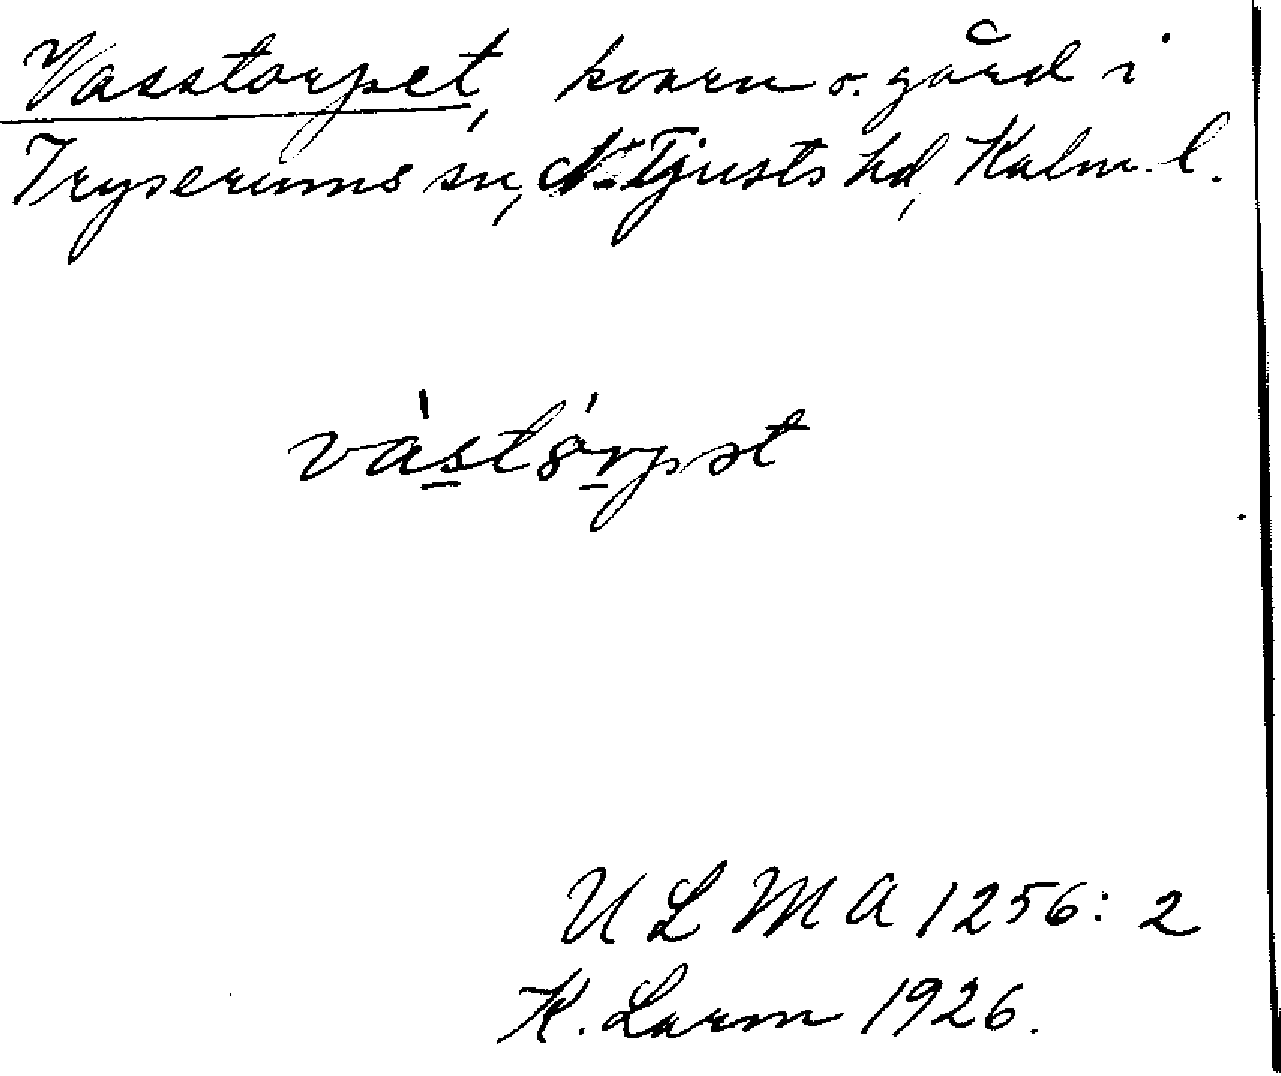 Vasstorpet, kvarn o. gård i
Tryserums sn, N. Tjusts hd, Kalm. l.
va̍s̲tȯ̍r̲pət
U L M A 1256: 2
K. Larm 1926.